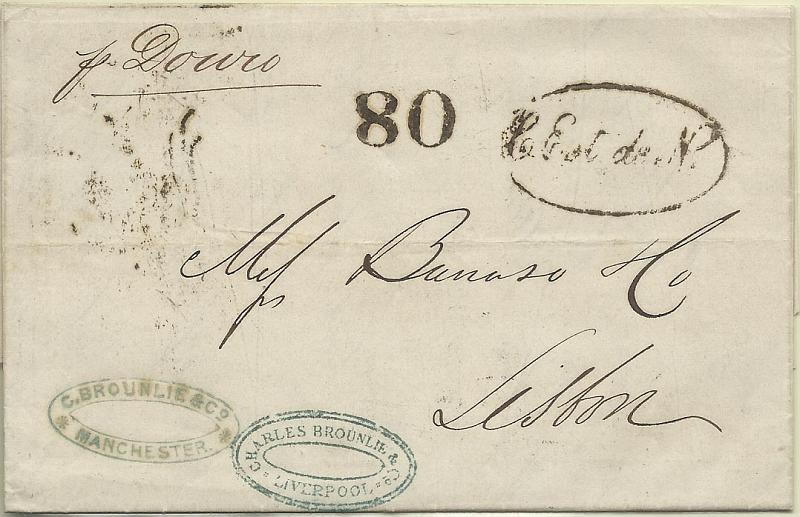 pr Douro
80
C. Est. de N.
Mess
Lisbon
C. BROUNLIE & Co
MANCHESTER.
CHARLES BROUNLIE & Co
LIVERPOOL